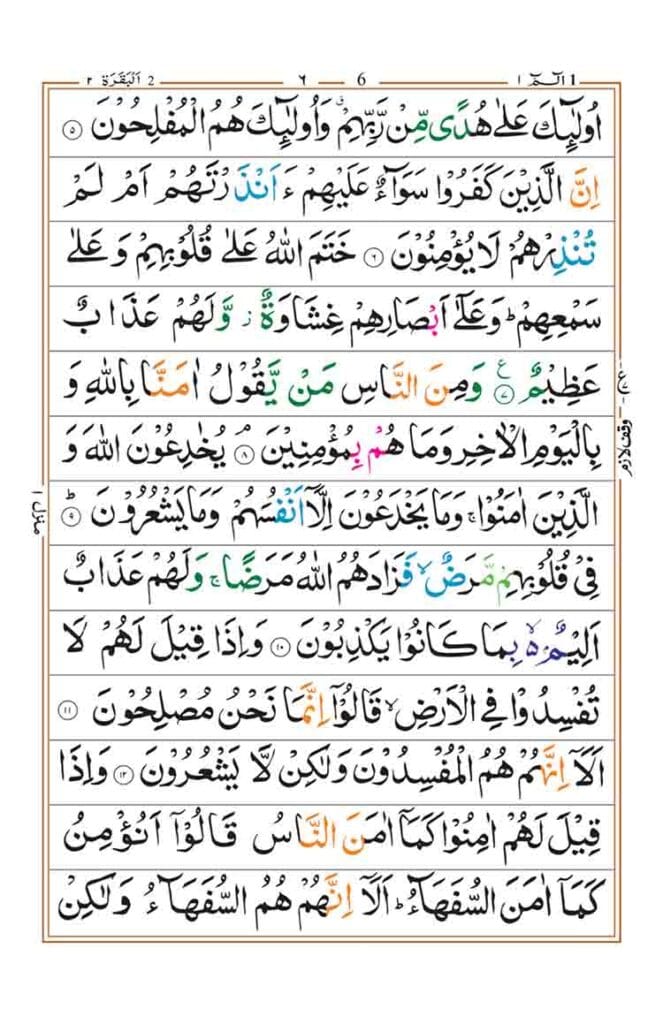 الٓمّٓ ١ 1
6 ٦
2 اَلْبَقَرَة ٢
اُولٰٓئِكَ عَلٰى هُدًى مِّنْ رَّبِّهِمْ ۙ وَاُولٰٓئِكَ هُمُ الْمُفْلِحُوْنَ ۝٥
اِنَّ الَّذِيْنَ كَفَرُوْا سَوَآءٌ عَلَيْهِمْ ءَاَنْذَرْتَهُمْ اَمْ لَمْ
تُنْذِرْهُمْ لَا يُؤْمِنُوْنَ ۝٦ خَتَمَ اللّٰهُ عَلٰى قُلُوْبِهِمْ وَ عَلٰى
سَمْعِهِمْ ؕ وَعَلٰٓى اَبْصَارِهِمْ غِشَاوَةٌ ز وَّلَهُمْ عَذَابٌ
عَظِيْمٌ ۝٧ ع وَمِنَ النَّاسِ مَنْ يَّقُوْلُ اٰمَنَّا بِاللّٰهِ وَ
بِالْيَوْمِ الْاٰخِرِ وَمَا هُمْ بِمُؤْمِنِيْنَ ۝٨ۘ يُخٰدِعُوْنَ اللّٰهَ وَ
الَّذِيْنَ اٰمَنُوْا ۚ وَمَا يَخْدَعُوْنَ اِلَّآ اَنْفُسَهُمْ وَمَا يَشْعُرُوْنَ ۝٩ؕ
فِيْ قُلُوْبِهِمْ مَّرَضٌ ۙ فَزَادَهُمُ اللّٰهُ مَرَضًا ۚ وَلَهُمْ عَذَابٌ
اَلِيْمٌۢ ۙ بِمَا كَانُوْا يَكْذِبُوْنَ ۝١٠ وَاِذَا قِيْلَ لَهُمْ لَا
تُفْسِدُوْا فِي الْاَرْضِ ۙ قَالُوْٓا اِنَّمَا نَحْنُ مُصْلِحُوْنَ ۝١١
اَلَآ اِنَّهُمْ هُمُ الْمُفْسِدُوْنَ وَلٰكِنْ لَّا يَشْعُرُوْنَ ۝١٢ وَاِذَا
قِيْلَ لَهُمْ اٰمِنُوْا كَمَآ اٰمَنَ النَّاسُ قَالُوْٓا اَنُؤْمِنُ
كَمَآ اٰمَنَ السُّفَهَآءُ ؕ اَلَآ اِنَّهُمْ هُمُ السُّفَهَآءُ وَلٰكِنْ
وقف لازم
منزل ١